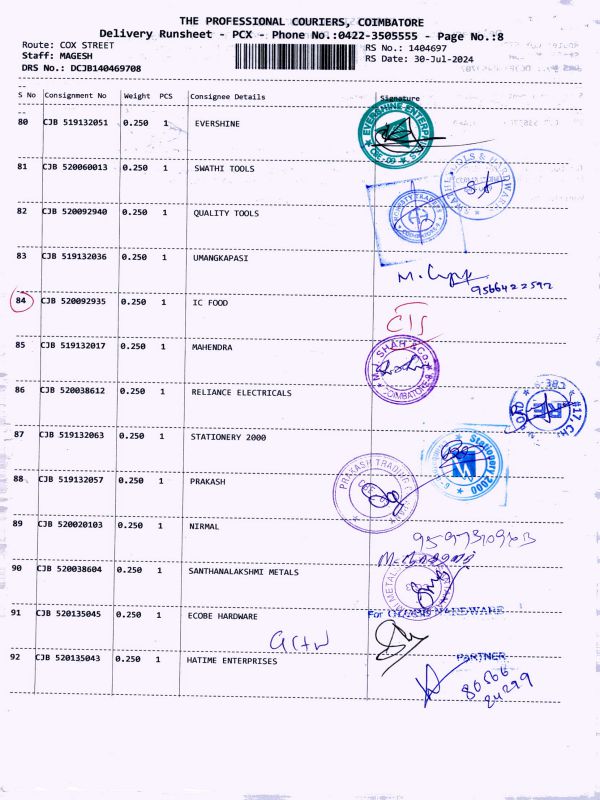 THE PROFESSIONAL COURIERS, COIMBATORE
Delivery Runsheet - PCX - Phone No.:0422-3505555 - Page No.:8
Route: COX STREET
RS No.: 1404697
Staff: MAGESH
RS Date: 30-Jul-2024
DRS No.: DCJB140469708
S No Consignment No Weight PCS Consignee Details Signature
80 CJB 519132051 0.250 1 EVERSHINE
81 CJB 520060013 0.250 1 SWATHI TOOLS
82 CJB 520092940 0.250 1 QUALITY TOOLS
83 CJB 519132036 0.250 1 UMANGKAPASI
9566422592
84 CJB 520092935 0.250 1 IC FOOD
85 CJB 519132017 0.250 1 MAHENDRA
M. SHAH & Co.
COIMBATORE
86 CJB 520038612 0.250 1 RELIANCE ELECTRICALS
87 CJB 519132063 0.250 1 STATIONERY 2000
Stationery 2000
88 CJB 519132057 0.250 1 PRAKASH
PRAKASH TRADING
89 CJB 520020103 0.250 1 NIRMAL
90 CJB 520038604 0.250 1 SANTHANALAKSHMI METALS
91 CJB 520135045 0.250 1 ECOBE HARDWARE
For
HARDWARE
92 CJB 520135043 0.250 1 HATIME ENTERPRISES
PARTNER
80566
24299